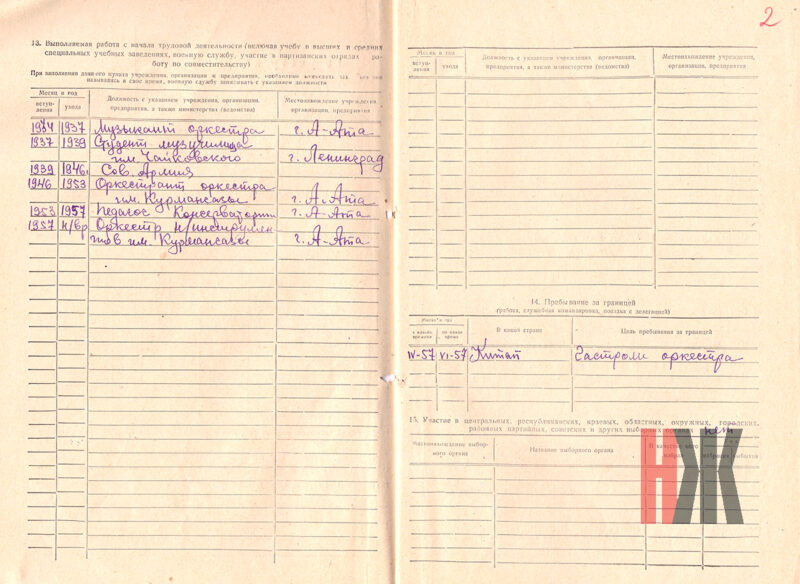 2
13. Выполняемая работа с начала трудовой деятельности (включая учебу в высших и средних
специальных учебных заведениях, военную службу, участие в партизанских отрядах работу по совместительству)
При заполнении данного пункта учреждения, организации и предприятия, необходимо
назывались в свое время, военную службу записывать с указанием должности
Месяц и год
вступления
ухода
Должность с указанием учреждения, организации,
предприятия, а также министерства (ведомства)
Местонахождение учреждения,
организации, предприятия
1934 1937 Музыкант оркестра г. А-Ата
1937 1939 Студент музучилища
им. Чайковского г. Ленинград
1939 1946 Сов. Армия
1946 1953 Оркестрант оркестра
им. Курмангазы г. А-Ата
1953 1957 Педагог Консерватории г. А-Ата
1957 н/вр Оркестр н/инструмен
тов им. Курмангазы г. А-Ата
Месяц и год
вступления
ухода
Должность с указанием учреждения, организации,
предприятия, а также министерства (ведомства)
Местонахождение учреждения,
организации, предприятия
14. Пребывание за границей
(работа, служебная командировка, поездка с делегацией)
Месяц и год
с какого времени
по какое время
В какой стране
Цель пребывания за границей
IV-57 VI-57 Китай Гастроли оркестра
15. Участие в центральных, республиканских, краевых, областных, окружных, городских,
районных партийных, советских и других выборных органах нет
Местонахождение выборного органа
Название выборного органа
В качестве кого
избран
избрания
выбытия
НЖ